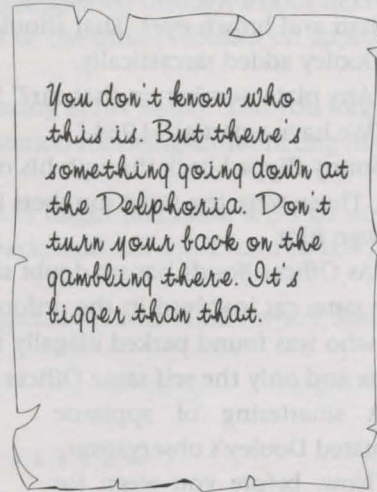 You don t know who
this is. But there's
something going down at
the Deliphoria. Don't
turn your back on the
gambling there. It's
bigger than that.